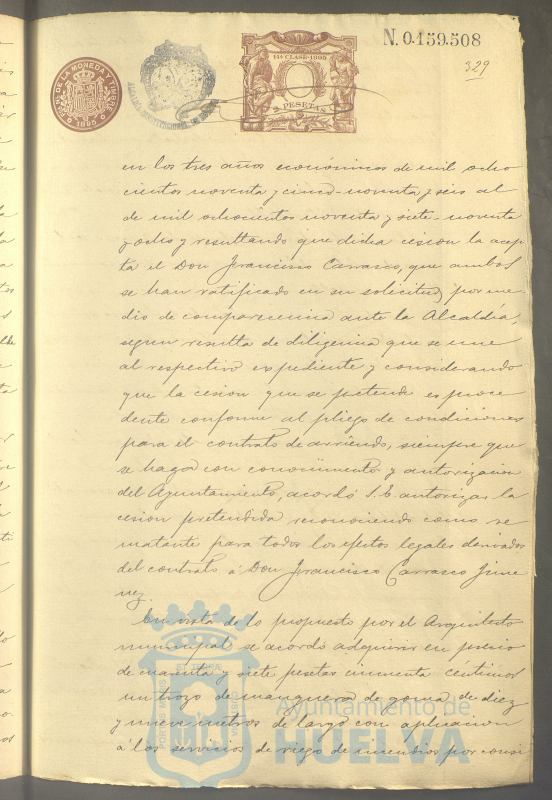 N. 0.159.508
329
11ª CLASE-1895
2 PESETAS
FAB. DE LA MONEDA Y TIMBRE
1895
en los tres años económicos de mil ocho
cientos noventa y cinco-noventa y seis al
de mil ochocientos noventa y siete-noventa
y ocho y resultando que dicha cesion la acep
ta el Don Francisco Carrasco, que ambos
se han ratificado en su solicitud por me
dio de comparecencia ante la Alcaldía,
segun resulta de diligencia que se une
al respectivo expediente y considerando
que la cesion que se pretende es proce
dente conforme al pliego de condiciones
para el contrato de arriendo, siempre que
se haga con conocimiento y autorizacion
del Ayuntamiento, acordó S.E. autorizar la
cesion pretendida reconociendo como re
matante para todos los efectos legales derivados
del contrato á Don Francisco Carrasco Jime
nez.
En vista de lo propuesto por el Arquitecto
municipal se acordó adquirir en precio
de cuarenta y siete pesetas cincuenta céntimos
un trozo de manguera de goma de diez
y nueve metros de largo con aplicacion
á los servicios de riego de incendios por consi
Ayuntamiento de
HUELVA